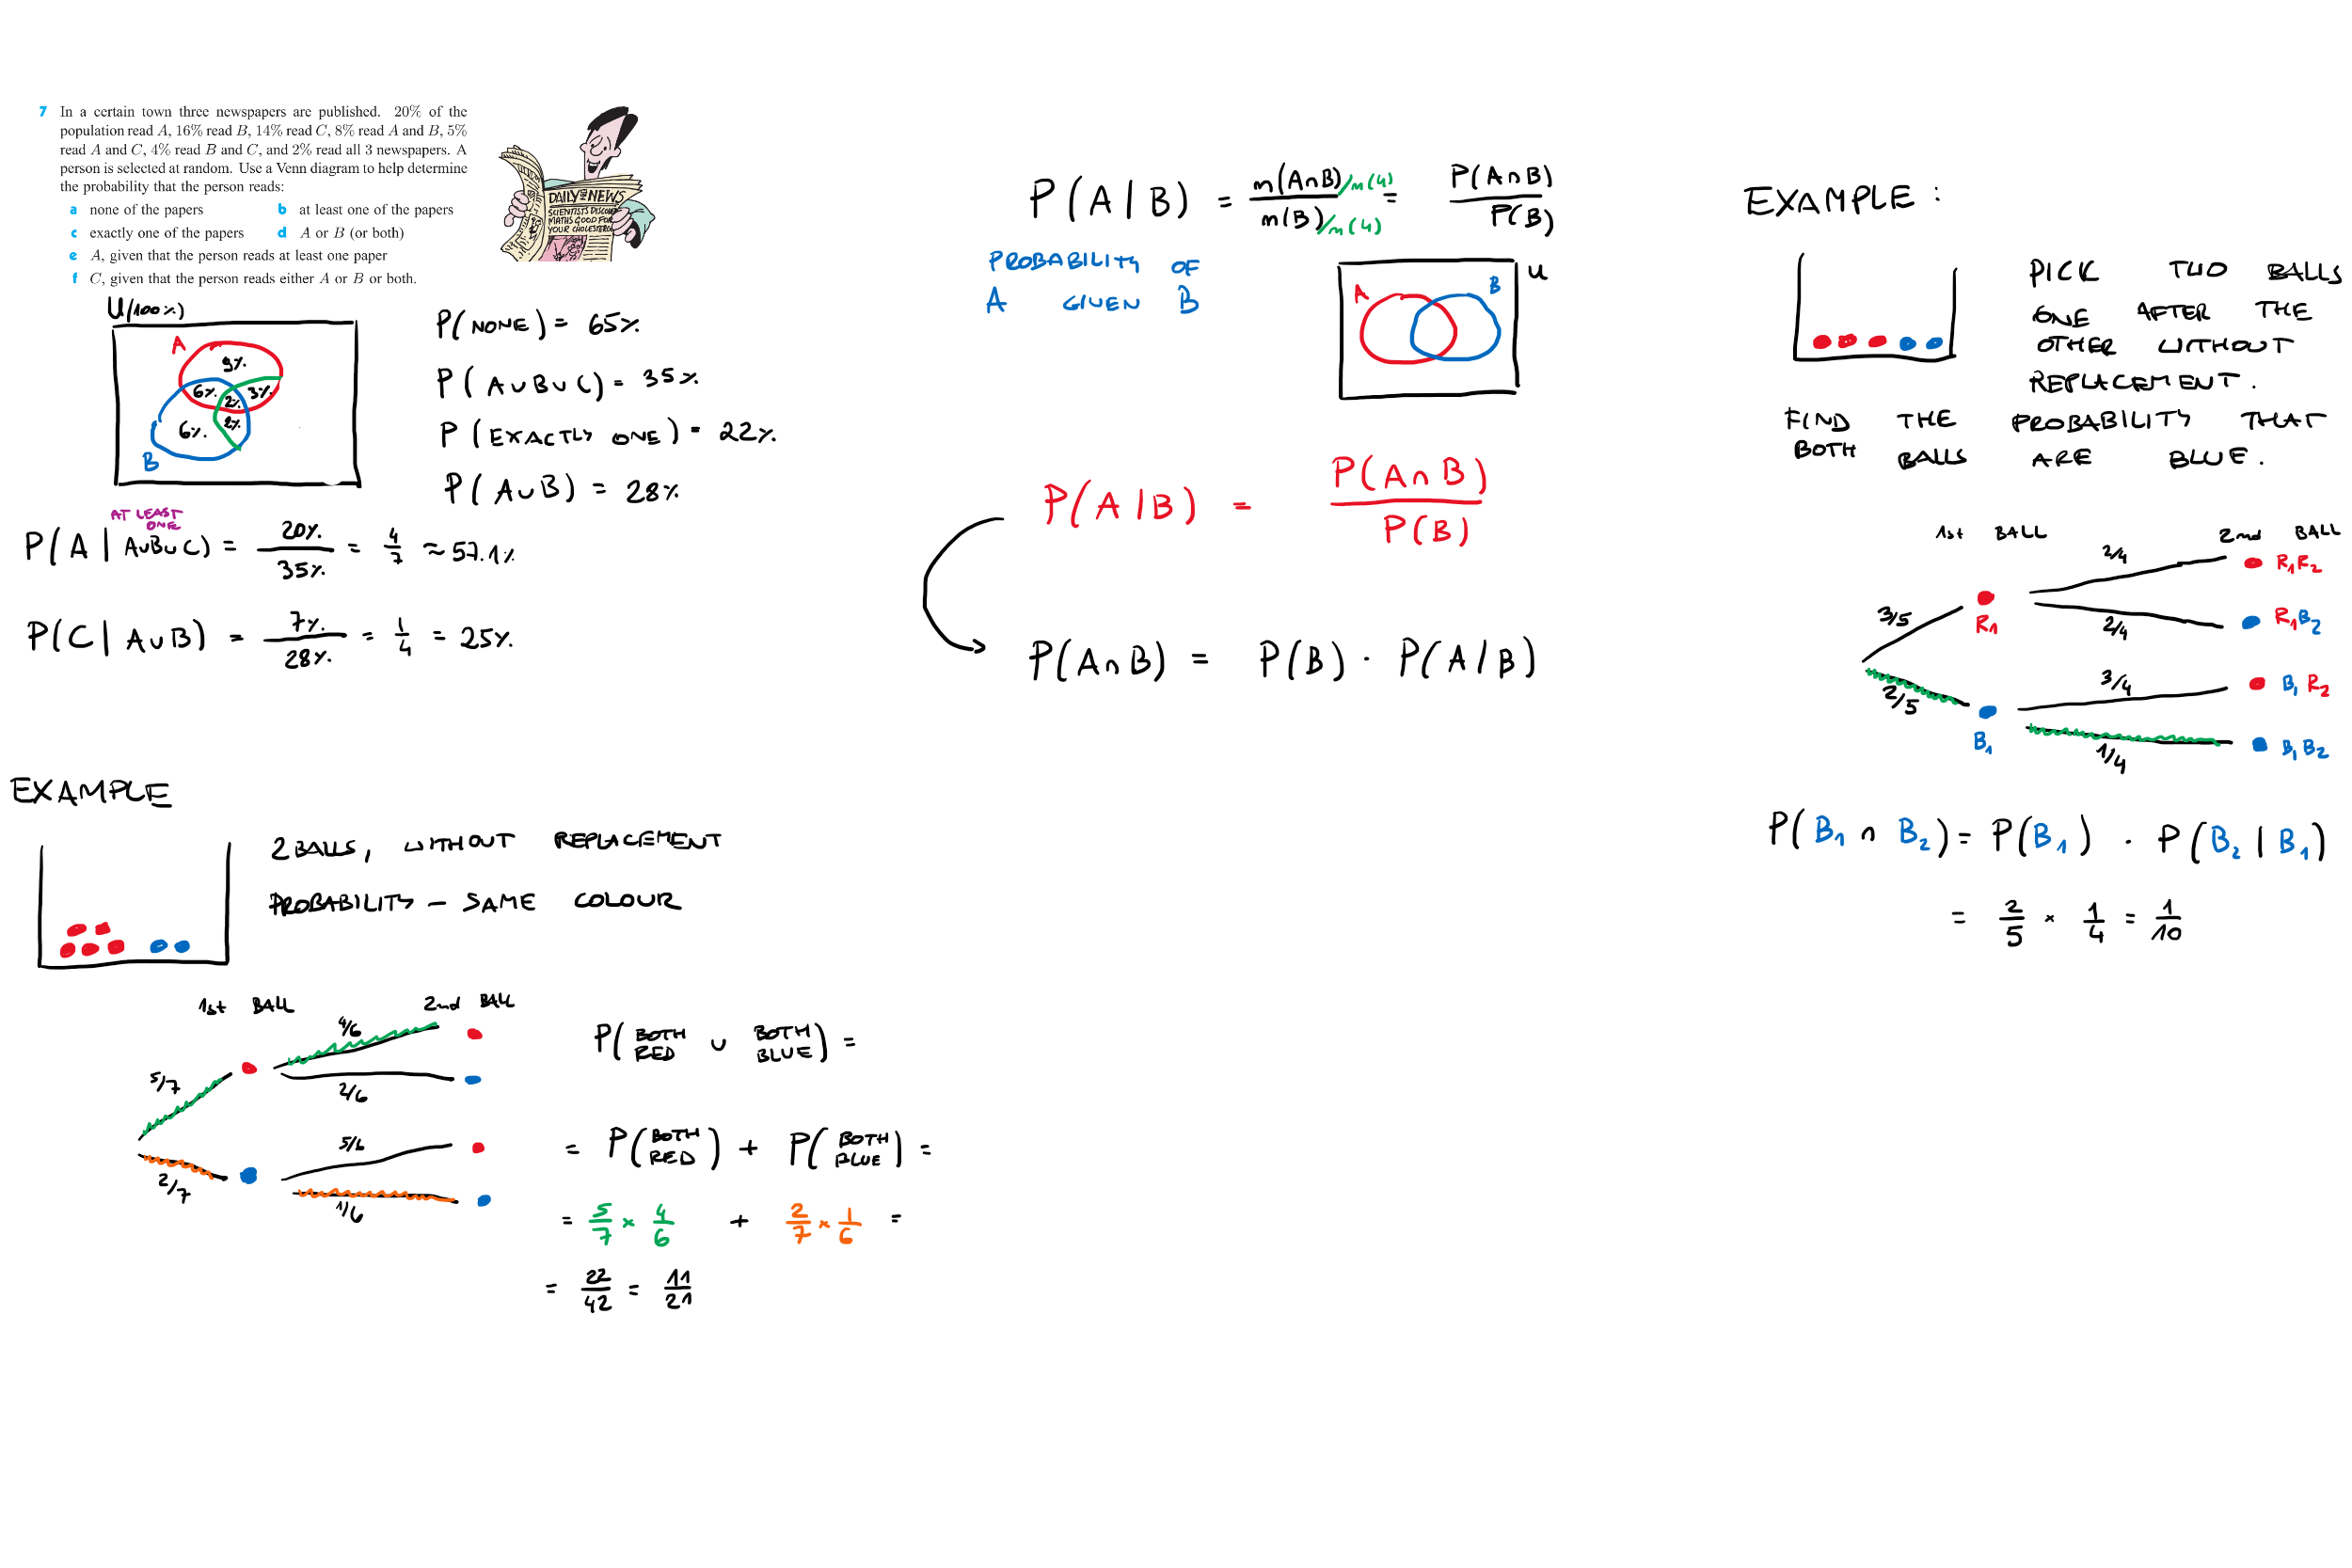 7 In a certain town three newspapers are published. 20% of the
population read A, 16% read B, 14% read C, 8% read A and B, 5%
read A and C, 4% read B and C, and 2% read all 3 newspapers. A
person is selected at random. Use a Venn diagram to help determine
the probability that the person reads:
a none of the papers b at least one of the papers
c exactly one of the papers d A or B (or both)
e A, given that the person reads at least one paper
f C, given that the person reads either A or B or both.
DAILY NEWS
SCIENTISTS DISCOVER
MATHS GOOD FOR
YOUR CHOLESTEROL
U(100%)
A
9%
6% 3%
2%
6% 2%
B
P(NONE) = 65%
P(A∪B∪C) = 35%
P(EXACTLY ONE) = 22%
P(A∪B) = 28%
AT LEAST
ONE
P(A | A∪B∪C) = 20%/35% = 4/7 ≈ 57.1%
P(C | A∪B) = 7%/28% = 1/4 = 25%
EXAMPLE
2 BALLS, WITHOUT REPLACEMENT
PROBABILITY – SAME COLOUR
1st BALL 2nd BALL
4/6
5/7
2/6
5/6
2/7
1/6
P(BOTH RED ∪ BOTH BLUE) =
= P(BOTH RED) + P(BOTH BLUE) =
= 5/7 × 4/6 + 2/7 × 1/6 =
= 22/42 = 11/21
P(A|B) = n(A∩B)/n(U) / n(B)/n(U) = P(A∩B)/P(B)
PROBABILITY OF
A GIVEN B
A B U
P(A|B) = P(A∩B)/P(B)
P(A∩B) = P(B) · P(A|B)
EXAMPLE:
PICK TWO BALLS
ONE AFTER THE
OTHER WITHOUT
REPLACEMENT.
FIND THE PROBABILITY THAT
BOTH BALLS ARE BLUE.
1st BALL 2nd BALL
2/4 R1R2
3/5 R1
2/4 R1B2
3/4 B1R2
2/5 B1
1/4 B1B2
P(B1 ∩ B2) = P(B1) · P(B2|B1)
= 2/5 × 1/4 = 1/10